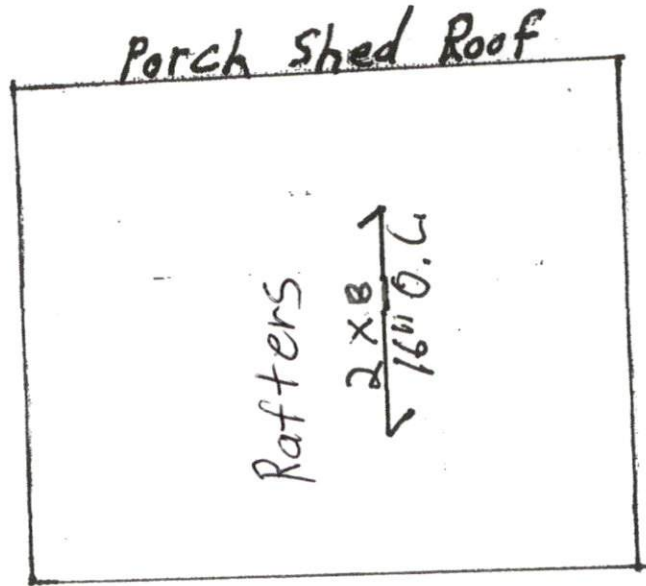 Porch Shed Roof
Rafters
2 x 8
16" O.C